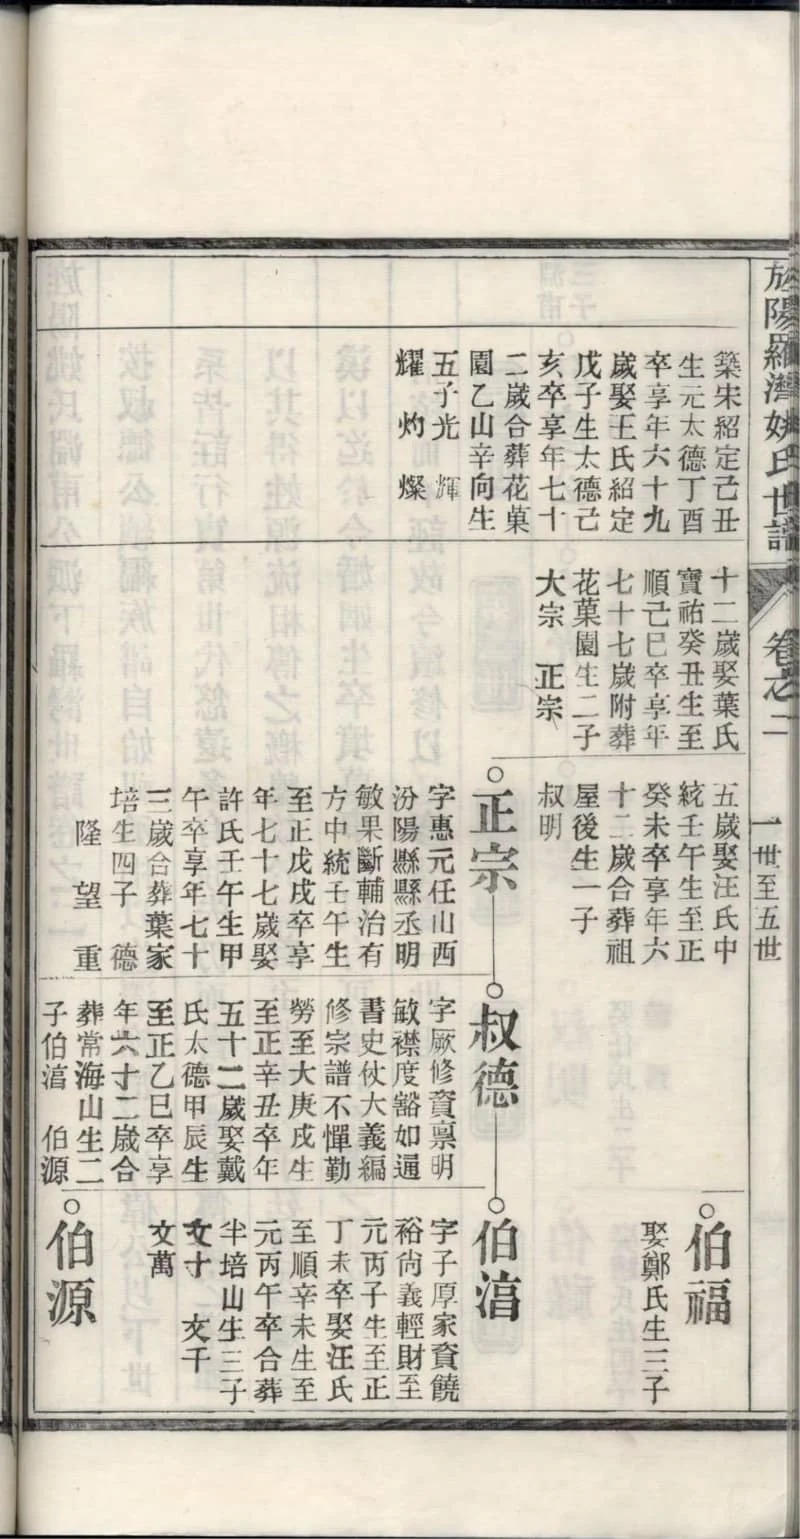 旌陽羅灣姚氏世譜
卷之二
一世至五世
築宋紹定己丑
生元太德丁酉
卒享年六十九
歲娶王氏紹定
戊子生太德己
亥卒享年七十
二歲合葬花菓
園乙山辛向生
五子光　輝
耀　灼　燦
十二歲娶葉氏
寶祐癸丑生至
順己巳卒享年
七十七歲附葬
花菓園生二子
大宗　正宗
五歲娶汪氏中
統壬午生至正
癸未卒享年六
十二歲合葬祖
屋後生一子
叔明
正宗
字惠元任山西
汾陽縣縣丞明
敏果斷輔治有
方中統壬午生
至正戊戌卒享
年七十七歲娶
許氏壬午生甲
午卒享年七十
三歲合葬葉家
培生四子　德
隆　望　重
叔德
字厥修資稟明
敏襟度豁如遍
書史仗大義編
修宗譜不憚勤
勞至大庚戌生
至正辛丑卒年
五十二歲娶戴
氏太德甲辰生
至正乙巳卒享
年六十二歲合
葬常海山生二
子伯㵆　伯源
伯福
娶鄭氏生三子
伯㵆
字子厚家資饒
裕尚義輕財至
元丙子生至正
丁未卒娶汪氏
至順辛未生至
元丙午卒合葬
半培山生三子
文寸　文千
文萬
伯源